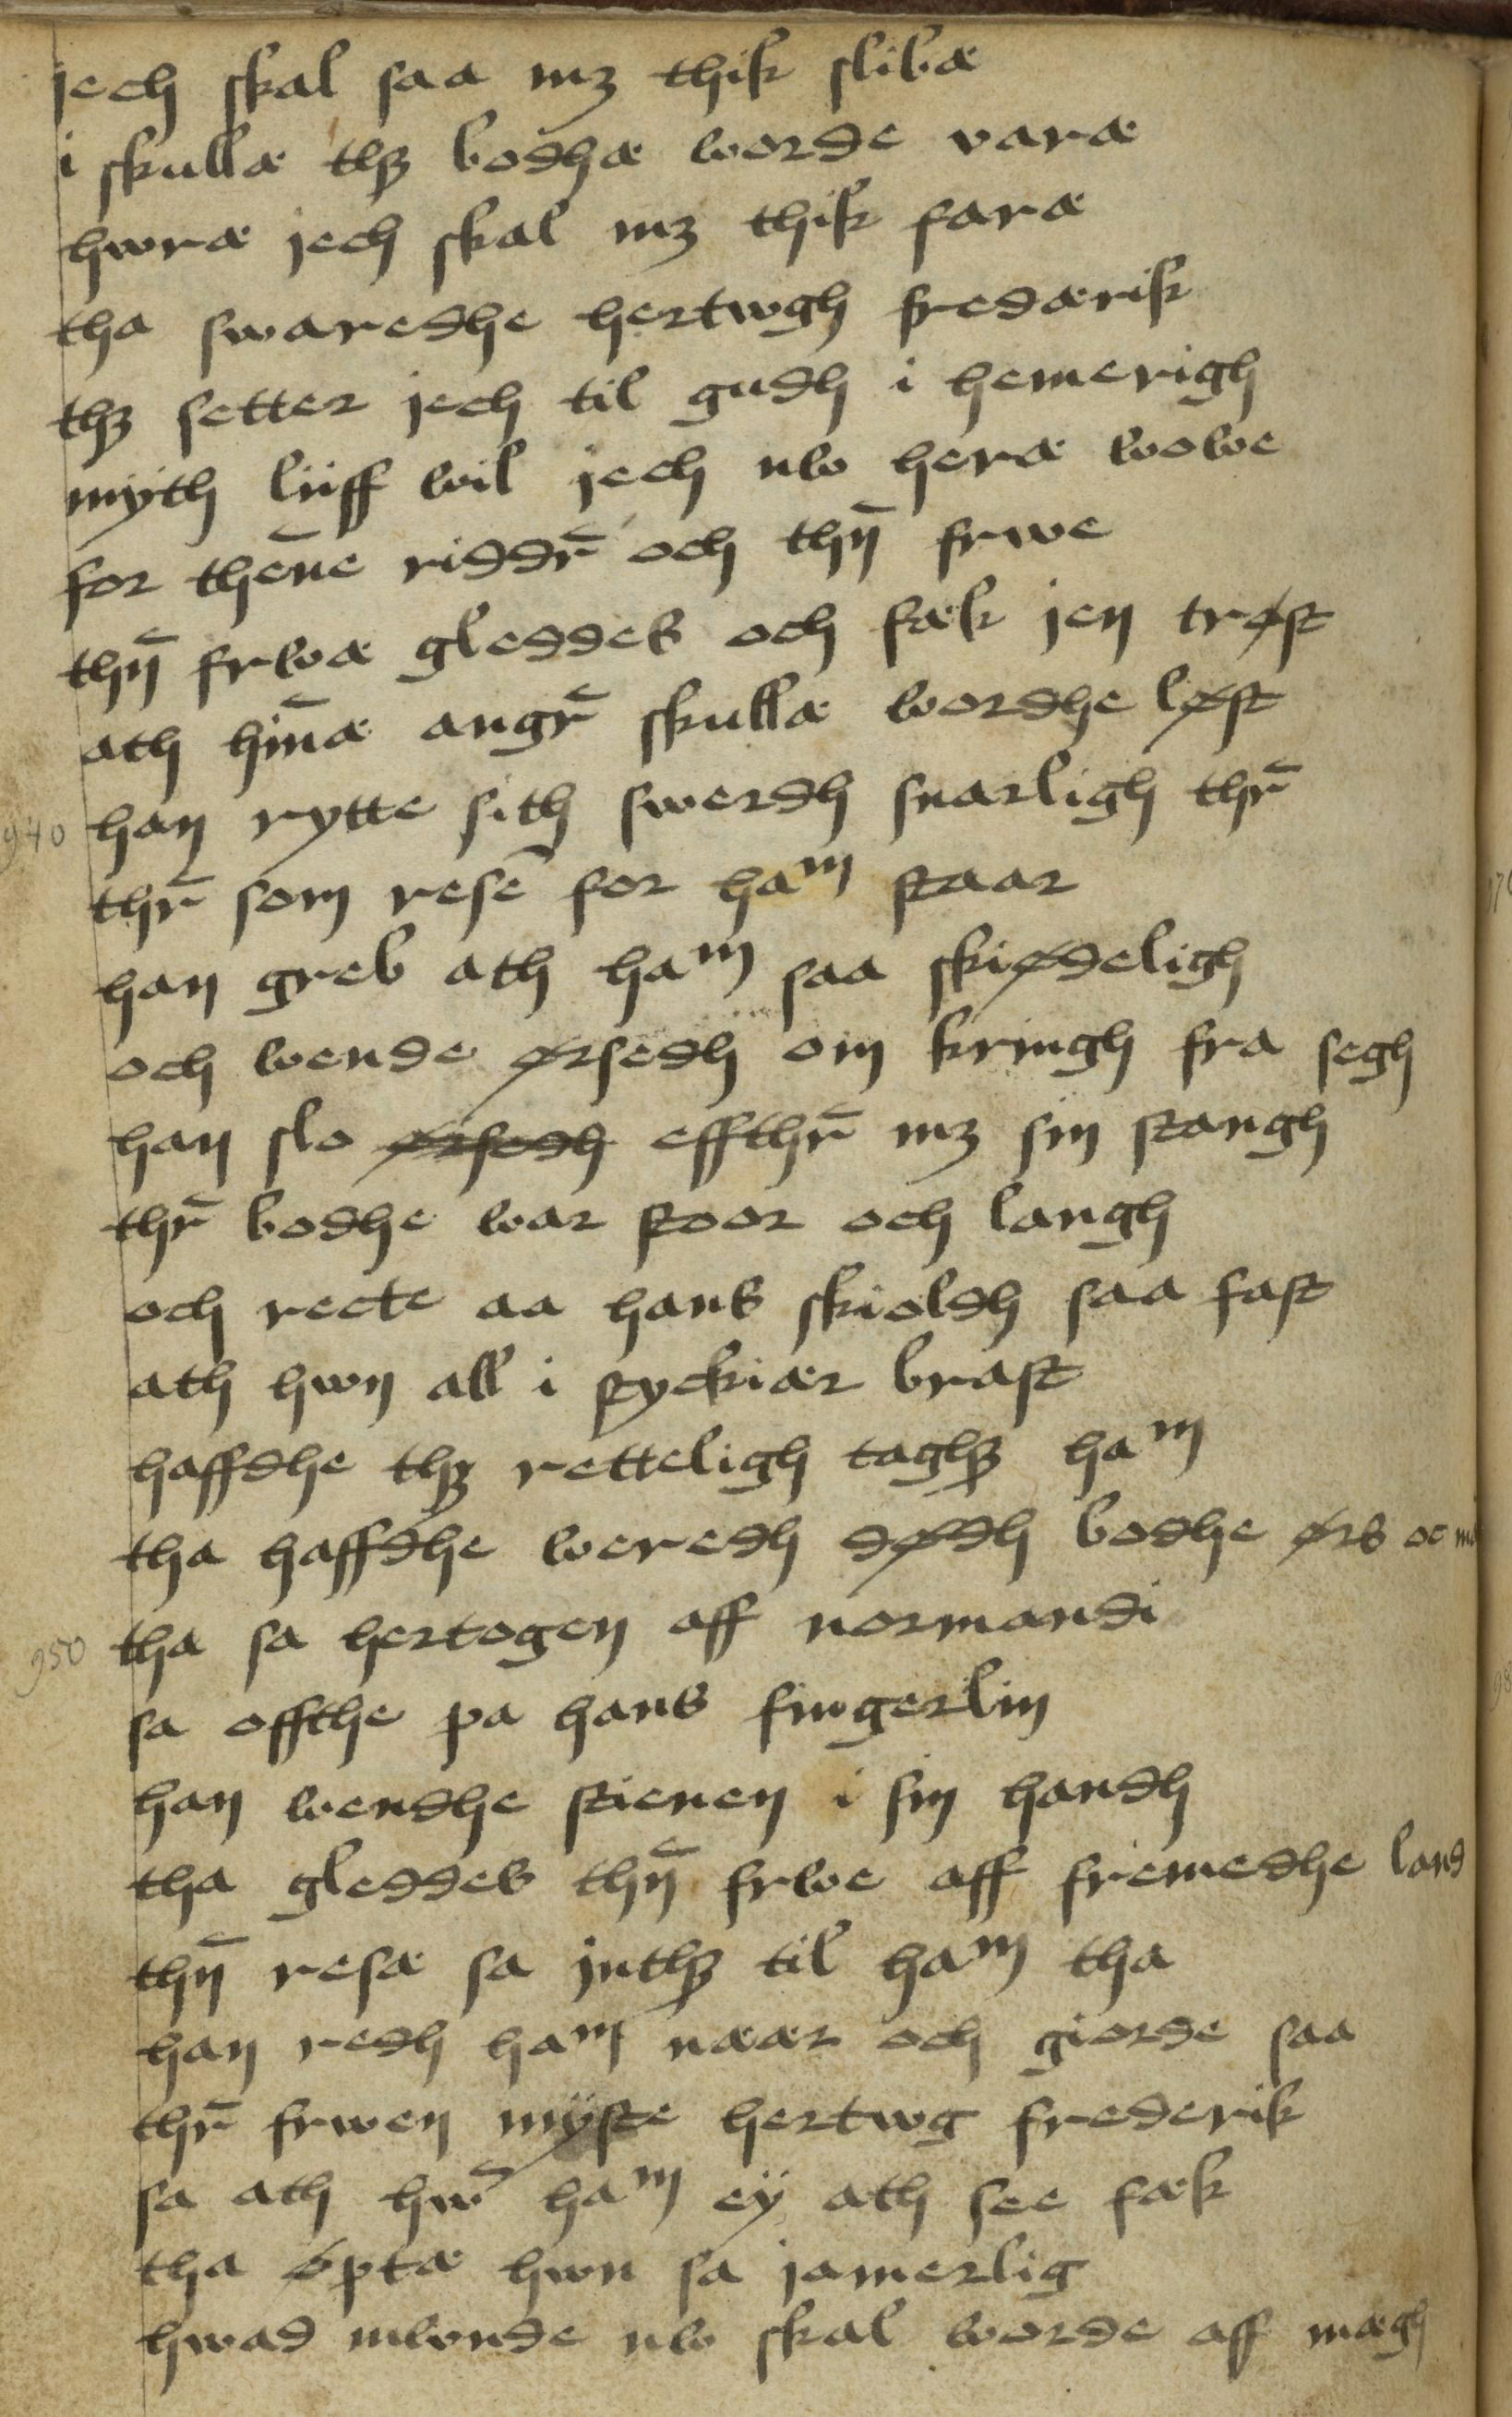 jech skal saa mꝫ thik slibæ
i skullæ thꝫ bodhæ worde varæ
hwræ jech skal mꝫ thik faræ
tha swaredhe hertwgh fredærik
thꝫ setter jech til gudh i hemerigh
myth liiff wil jech nw heræ wowe
for thēne riddr̄ och thn̄ frwe
thn̄ frwæ gleddes och fæk jen trøst
ath hin̄æ angr̄ skullæ wordhe løst
940 han rytte sith swerdh snarligh thr̄
thr̄ som resē for haᵐ staar
han greb ath haᵐ saa skiødeligh
och wende ørsedh om kringh fra segh
han slo ørsedh effthr̄ mꝫ sin stangh
thr̄ bodhe war stoor och langh
och recte aa hans skioldh saa fast
ath hwn all i styckiær brast
haffdhe thꝫ retteligh taghꝫ haᵐ
tha haffdhe weredh dødh bodhe ørs oc
950 tha sa hertogen aff normandi
sa offthe pa hans fingerlin
han wendhe stienen i sin handh
tha gleddes thn̄ frwe aff fremedhe land
thn̄ resæ sa jnthꝫ til haᵐ tha
han redh haᵐ næær och giorde saa
thr̄ frwen myste hertwg frederik
sa ath hw̄ haᵐ ey ath see fæk
tha øptæ hwn sa jamerlig
hwad mwnde nw skal worde aff mægh